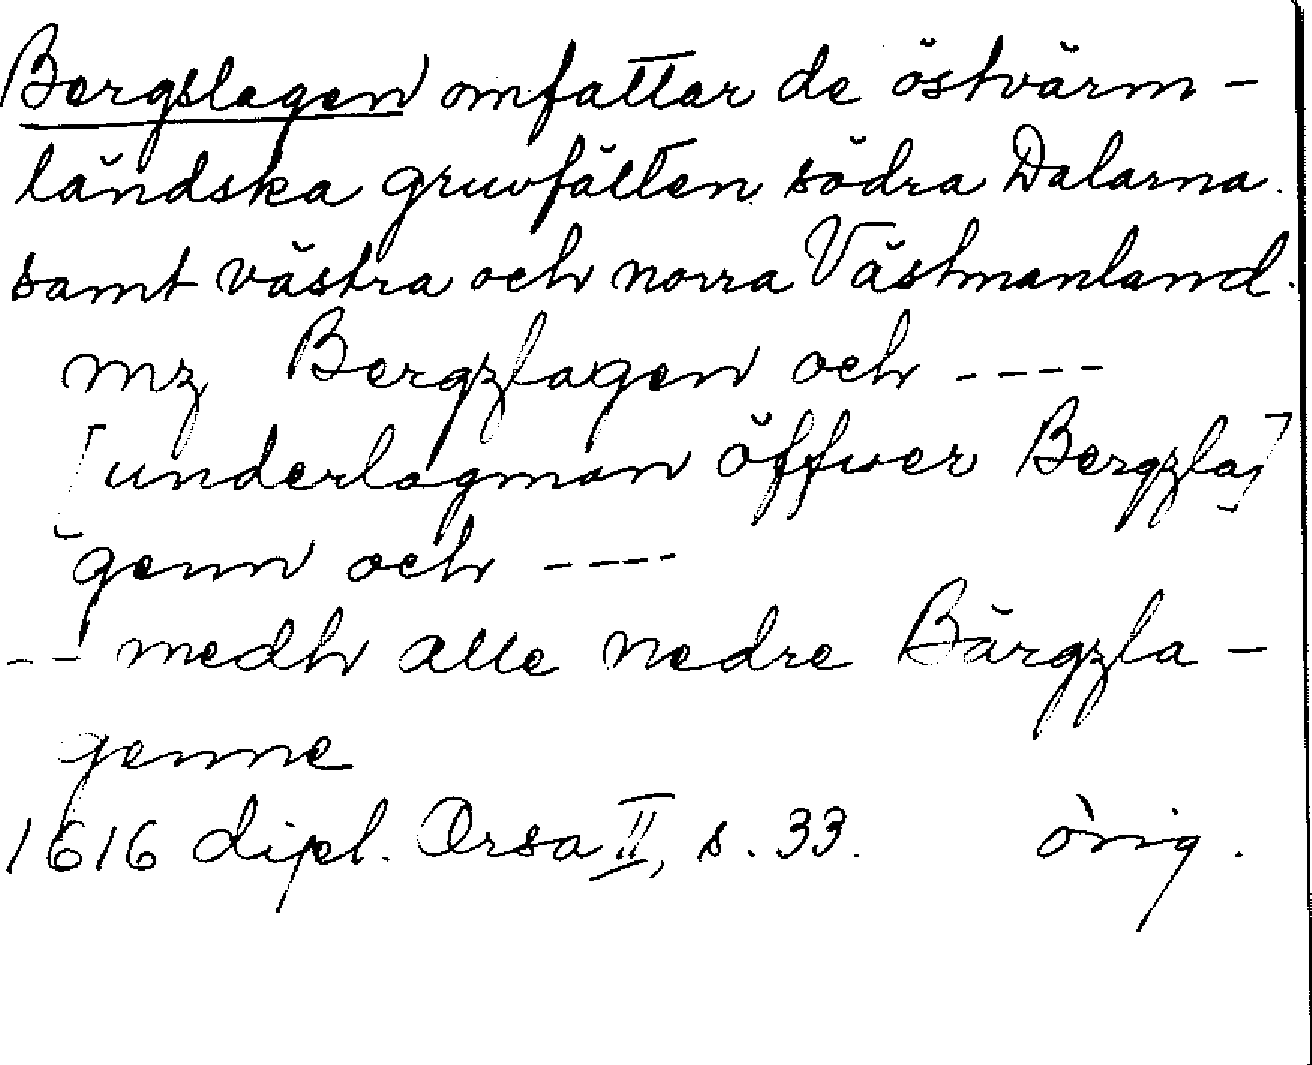 Bergslagen omfattar de östvärm-
ländska gruvfälten, södra Dalarna
samt västra och norra Västmanland.
mz Bergzlagen och ----
[underlagman öffwer Bergzla]
genn och ----
-- medh alle nedre Bärgzla-
genne
1616 dipl. Orsa II, s. 33. orig.